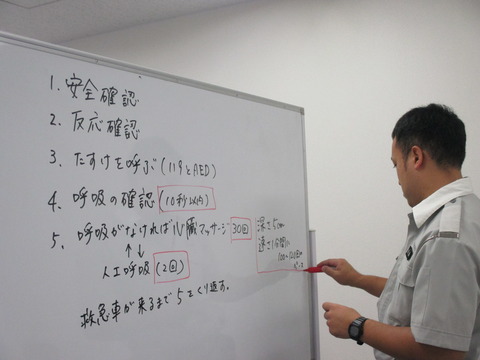 1. 安全確認
2. 反応確認
3. たすけを呼ぶ(119とAED)
4. 呼吸の確認(10秒以内)
5. 呼吸がなければ心臓マッサージ 30回
深さ5cm
速さ1分間に
100~120回の
ペース
人工呼吸(2回)
救急車が来るまで5をくり返す。